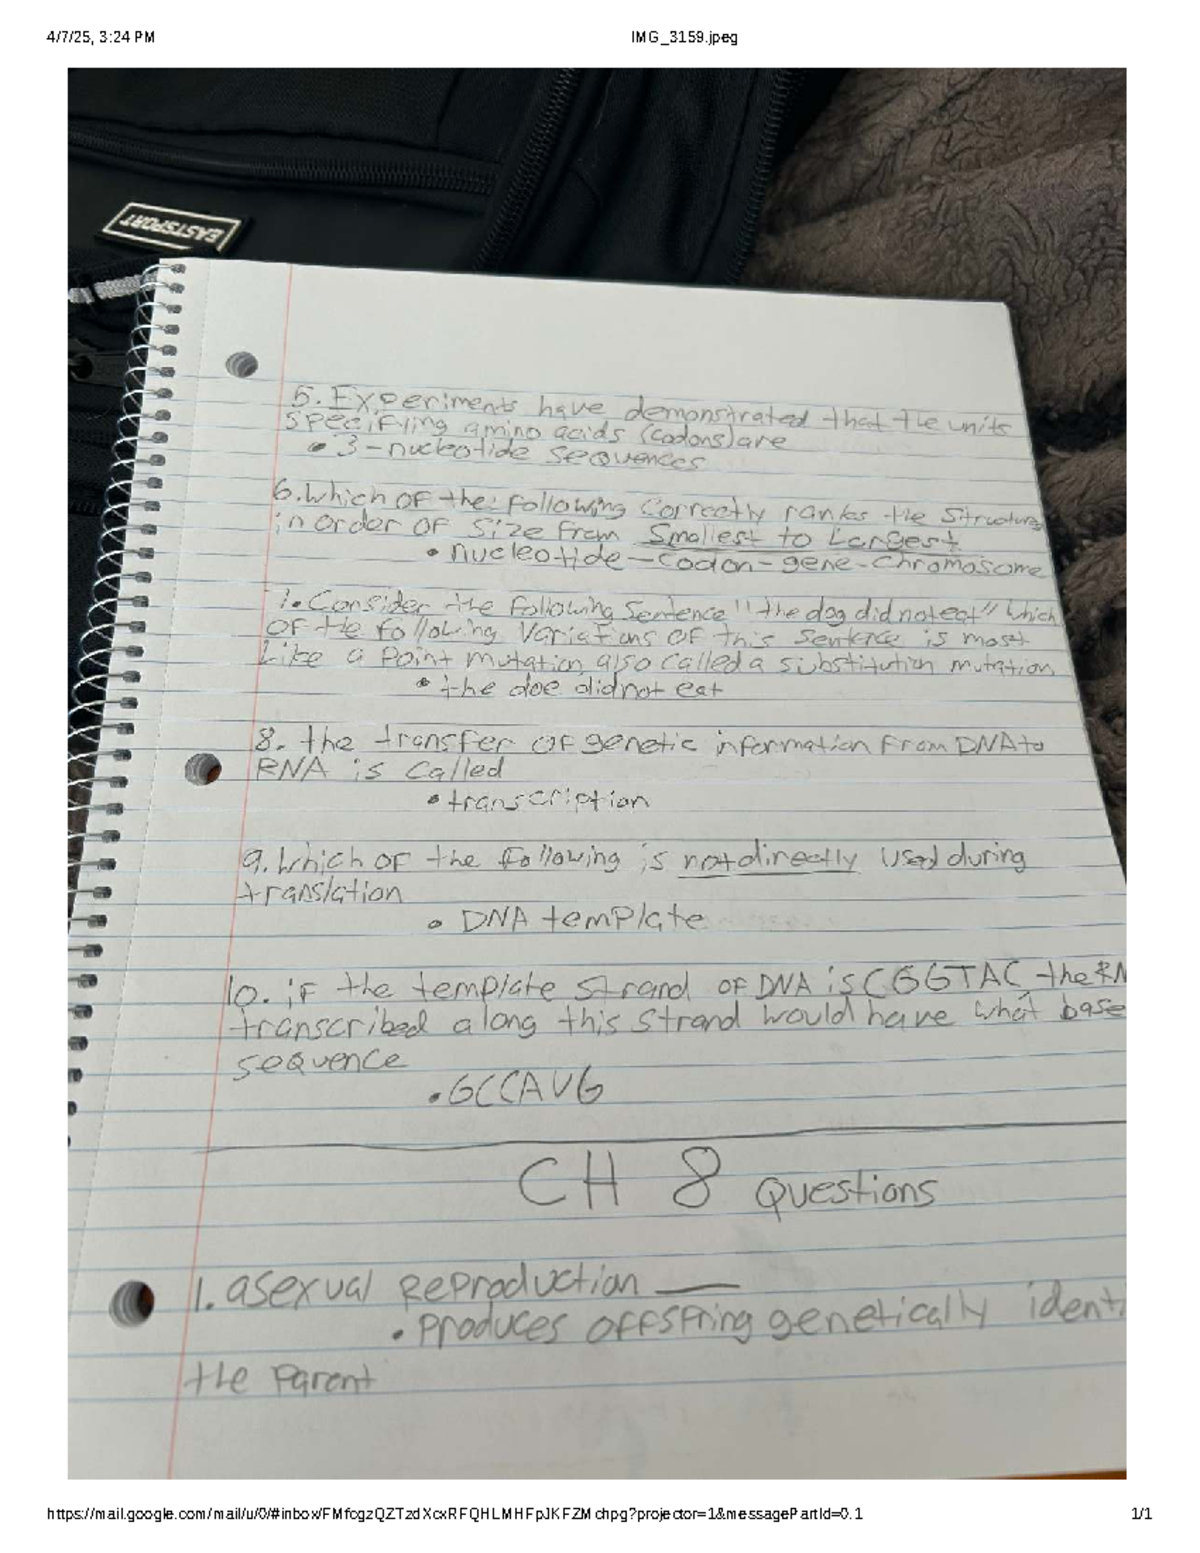 4/7/25, 3:24 PM
IMG_3159.jpeg
EASTSPORT
5. Experiments have demonstrated that the units
specifying amino acids (codons) are
• 3-nucleotide sequences
6. Which of the following correctly ranks the structures
in order of size from Smallest to Largest
• nucleotide-codon-gene-chromosome
7. Consider the following sentence "the dog did not eat" which
of the following variations of this sentence is most
like a point mutation, also called a substitution mutation
• the doe did not eat
8. the transfer of genetic information from DNA to
RNA is called
• transcription
9. Which of the following is not directly used during
translation
• DNA template
10. if the template strand of DNA is CGGTAC, the RN
transcribed along this strand would have what base
sequence
• GCCAUG
CH 8 Questions
1. asexual Reproduction ___
• produces offspring genetically identi
the parent
https://mail.google.com/mail/u/0/#inbox/FMfcgzQZTzdXcxRFQHLMHFpJKFZMchpg?projector=1&messagePartId=0.1
1/1